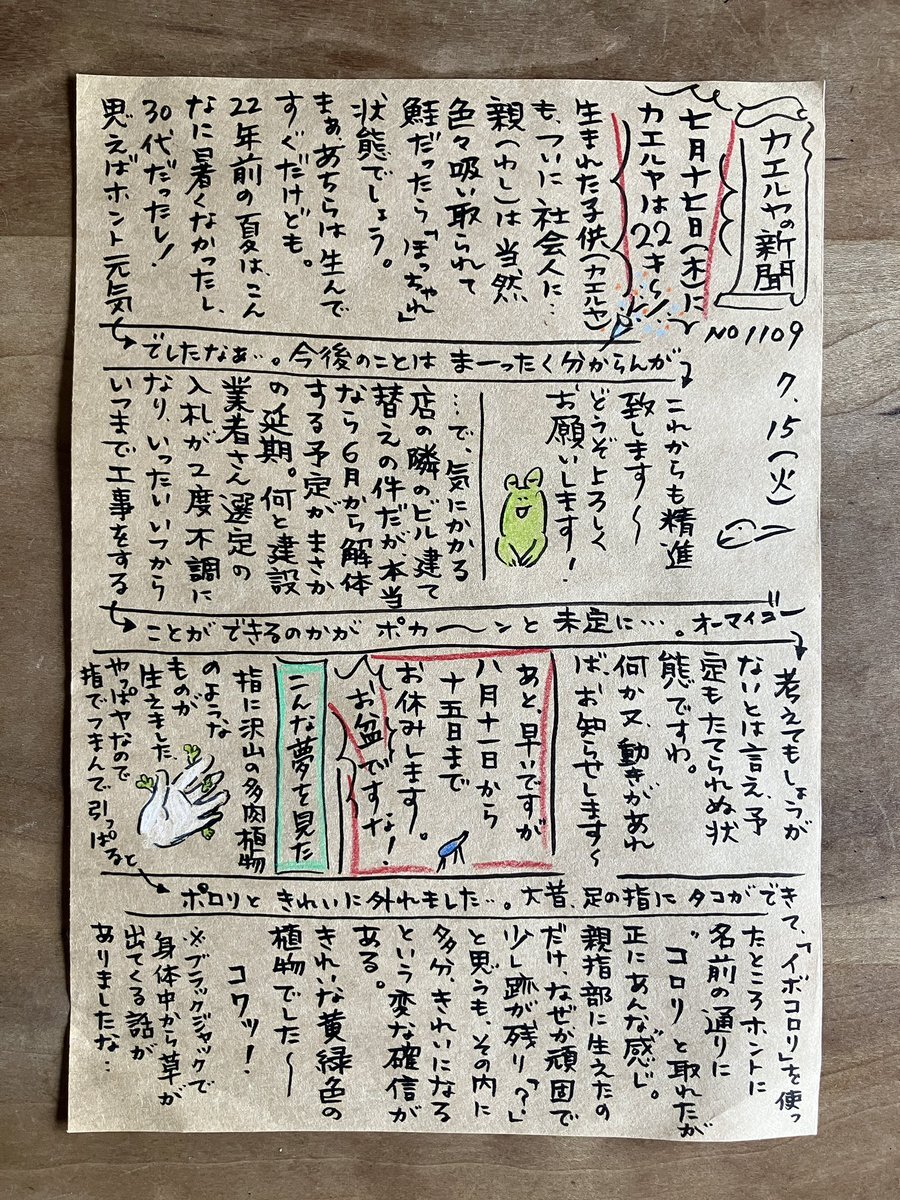 カエルヤの新聞
NO1109
7.15(火)
七月十七日(木)に
カエルヤは22才〜
生まれた子供(カエルヤ)
も、ついに社会人に…
親(わし)は当然
色々吸い取られて
鮭だったら「ほっちゃれ」
状態でしょう。
まぁ、あちらは生んで
すぐだけども。
22年前の夏は、こん
なに暑くなかったし、
30代だったし!
思えばホント元気
でしたなぁ…。今後のことは まーったく分からんが
これからも精進
致します〜
どうぞよろしく
お願いします!
…で、気にかかる
店の隣のビル建て
替えの件だが、本当
なら6月から解体
する予定が まさか
の延期。何と建設
業者さん選定の
入札が2度不調に
なり、いったいいつから
いつまで工事をする
ことができるのかが ポカ〜ンと 未定に…。オーマイゴー
考えてもしょうが
ないとは言え、予
定もたてられぬ状
態ですわ。
何か又、動きがあれ
ば、お知らせします〜
あと、早いですが
八月十一日から
十五日まで
お休みします。
お盆ですナ!
こんな夢を見た
指に沢山の多肉植物
のような
ものが
生えました
やっぱヤなので
指でつまんで引っぱると
ポロリと きれいに外れました…。大昔、足の指に タコができて、
「イボコロリ」を使っ
たところホントに
名前の通りに
〝コロリ〟と取れたが
正にあんな感じ。
親指部に生えたの
だけ、なぜか頑固で
少し跡が残り「?」
と思うも、その内に
多分、きれいになる
という変な確信が
ある。
きれいな黄緑色の
植物でした〜
コワッ!
※ブラックジャックで
身体中から草が
出てくる話が
ありましたな…